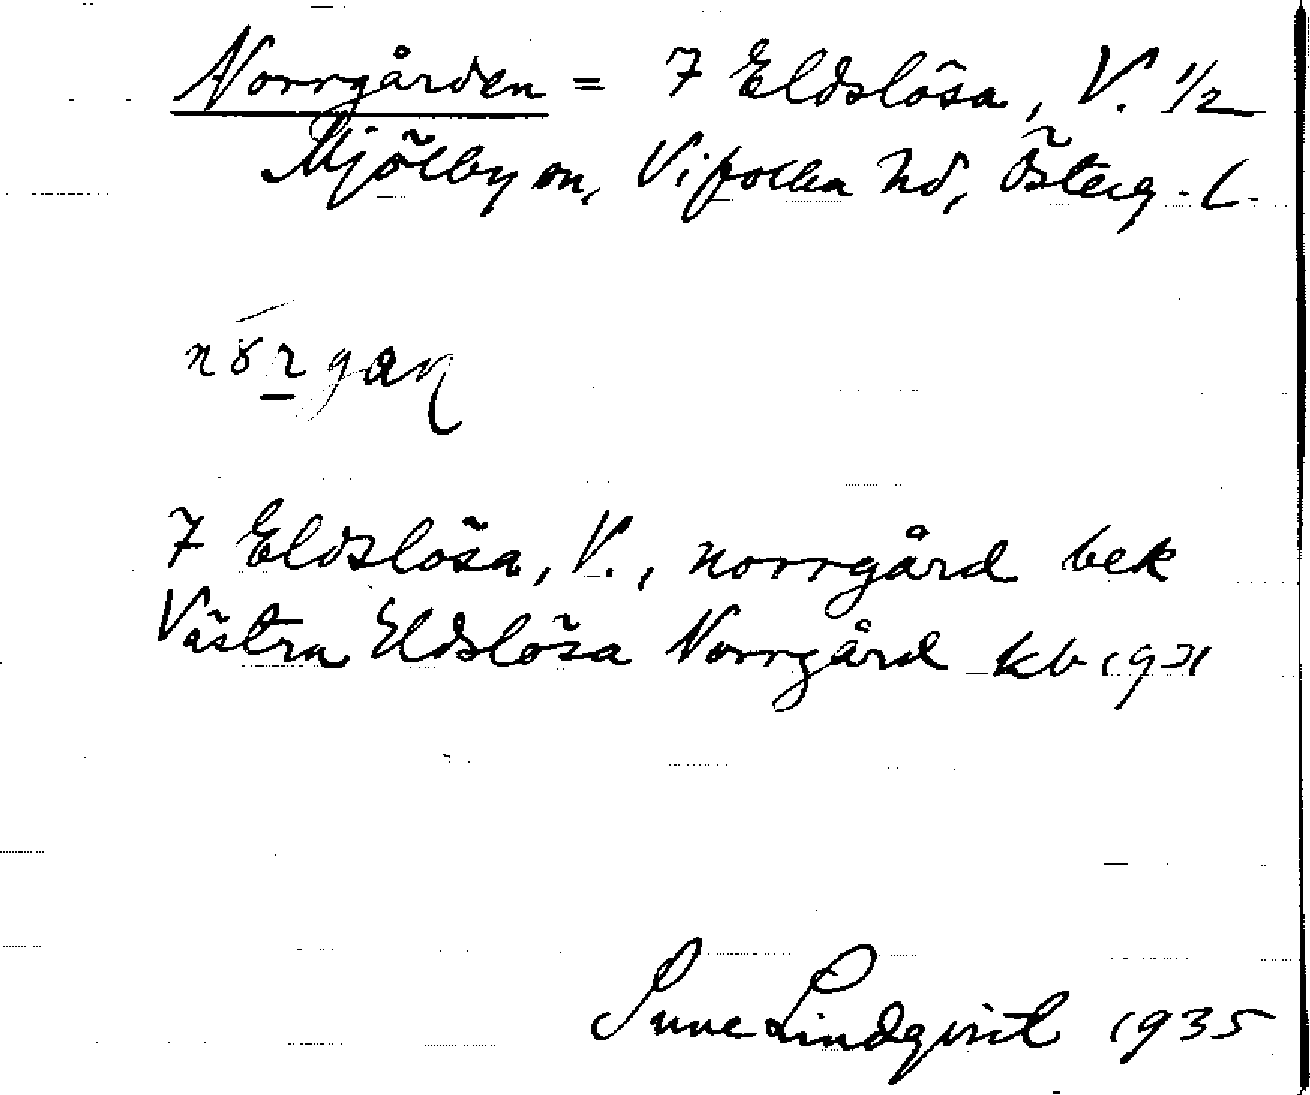 Norrgården = 7 Eldslösa, V. 1/2
Mjölby sn, Vifolka hd, Österg. l.
7 Eldslösa, V., norrgård bek
Västra Eldslösa Norrgård kb 1931
Sune Lindqvist 1935